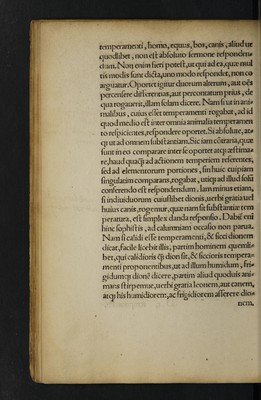 temperamenti, homo, equus, bos, canis, aliud ue
quodlibet, non est absoluto sermone respondendum.
Non enim fieri potest, ut qui ad ea, quæ mul
tis modis sunt dicta, uno modo respondet, non co
arguatur. Oportet igitur duorum alterum, aut oẽs
percensere differentias, aut percontatum prius, de
qua rogauerit, illam solam dicere. Nam si ut in ani
malibus, cuius esset temperamenti rogabat, ad id
quod medio est inter omnia animalia temperamen
to respicientes, respondere oportet. Si absolute, at
qȝ ut ad omnem substantiam. Sic iam cõtraria, quæ
sunt in eo comparare inter se oportet atqȝ æstima-
re, haud quaqȝ ad actionem temperiem referentes,
sed ad elementorum portiones, sin huic cuipiam
singulatim comparans, rogabat, utiqȝ ad illud solũ
conferendo est respondendum. Iam minus etiam,
si indiuiduorum cuiuslibet dionis, uerbi gratia uel
huius canis, rogemur, quæ nam sit substantiæ tem
peratura, est simplex danda responsio. Dabit̃ eni
hinc sophistis, ad calumniam occasio non parua.
Nam si calidi esse temperamenti, & sicci dionem
dicat, facile licebit illis, partim hominem quemli-
bet, qui calidioris qȝ dion sit, & siccioris tempera-
menti proponentibus, ut ad illum humidum, fri-
gidumqȝ dionẽ dicere, partim aliud quoduis ani-
mans stirpemue, uerbi gratia leonem, aut canem,
atqȝ his humidiorem, ac frigidiorem asserere dio-
nem.